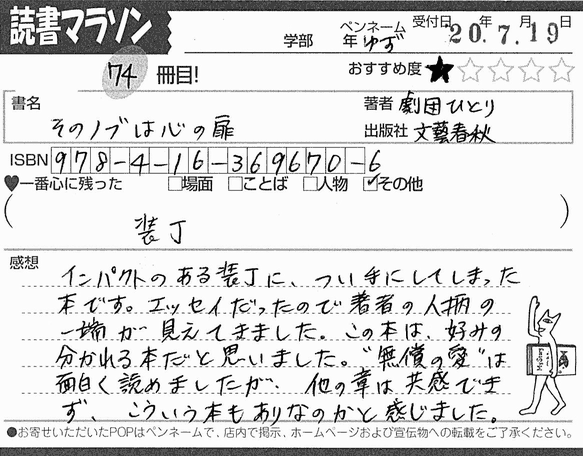 読書マラソン
学部 年 ペンネーム ゆず 受付日 20年 7月 19日
74 冊目! おすすめ度 ★☆☆☆☆
書名 著者 劇団ひとり
そのノブは心の扉 出版社 文藝春秋
ISBN 978-4-16-369670-6
♥一番心に残った □場面 □ことば □人物 ☑その他
( 装丁 )
感想
インパクトのある装丁に、つい手にしてしまった
本です。エッセイだったので著者の人柄の
一端が見えてきました。この本は、好みの
分かれる本だと思いました。"無償の愛"は
面白く読めましたが、他の章は共感できま
ず、こういう本もありなのかと感じました。
●お寄せいただいたPOPはペンネームで、店内で掲示、ホームページおよび宣伝物への転載をご了承ください。